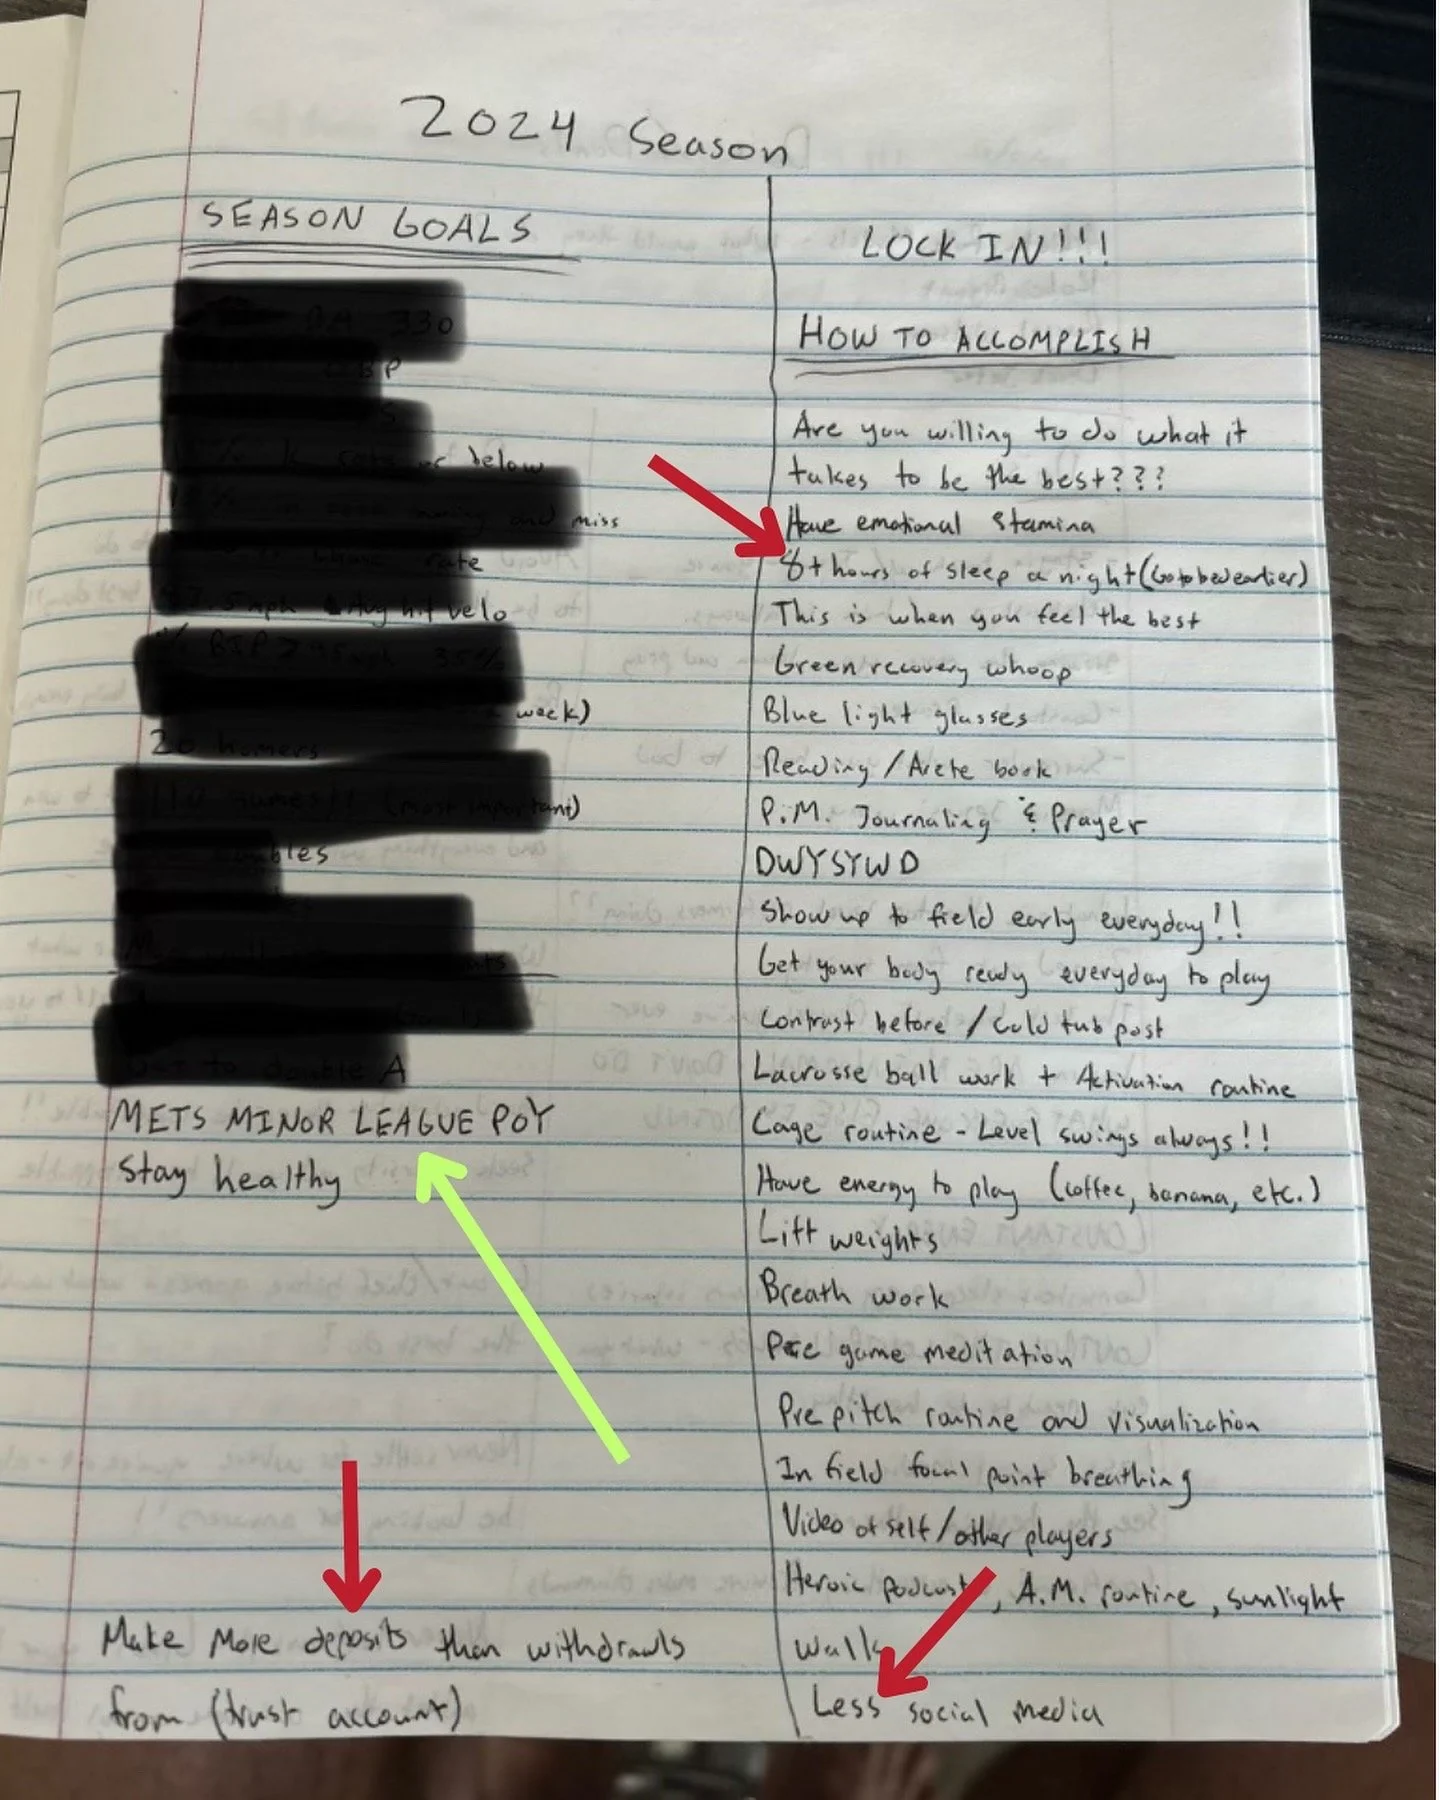 2024 Season
SEASON GOALS
BA 330
BP
rate or below
and miss
rate
Avg hit velo
BIP > 95mph 35%
week)
20 homers
110 games!! (most important)
to double A
METS MINOR LEAGUE POY
Stay healthy
Make more deposits than withdrawls
from (trust account)
LOCK IN!!!
HOW TO ACCOMPLISH
Are you willing to do what it
takes to be the best???
Have emotional stamina
8+ hours of sleep a night (Go to bed earlier)
This is when you feel the best
Green recovery whoop
Blue light glasses
Reading / Arete book
P.M. Journaling & Prayer
DWYSYWD
Show up to field early everyday!!
Get your body ready everyday to play
Contrast before / Cold tub post
Lacrosse ball work + Activation routine
Cage routine - Level swings always!!
Have energy to play (coffee, banana, etc.)
Lift weights
Breath work
Pre game meditation
Pre pitch routine and visualization
In field focal point breathing
Video of self/other players
Heroic podcast, A.M. routine, sunlight
walk
Less social media